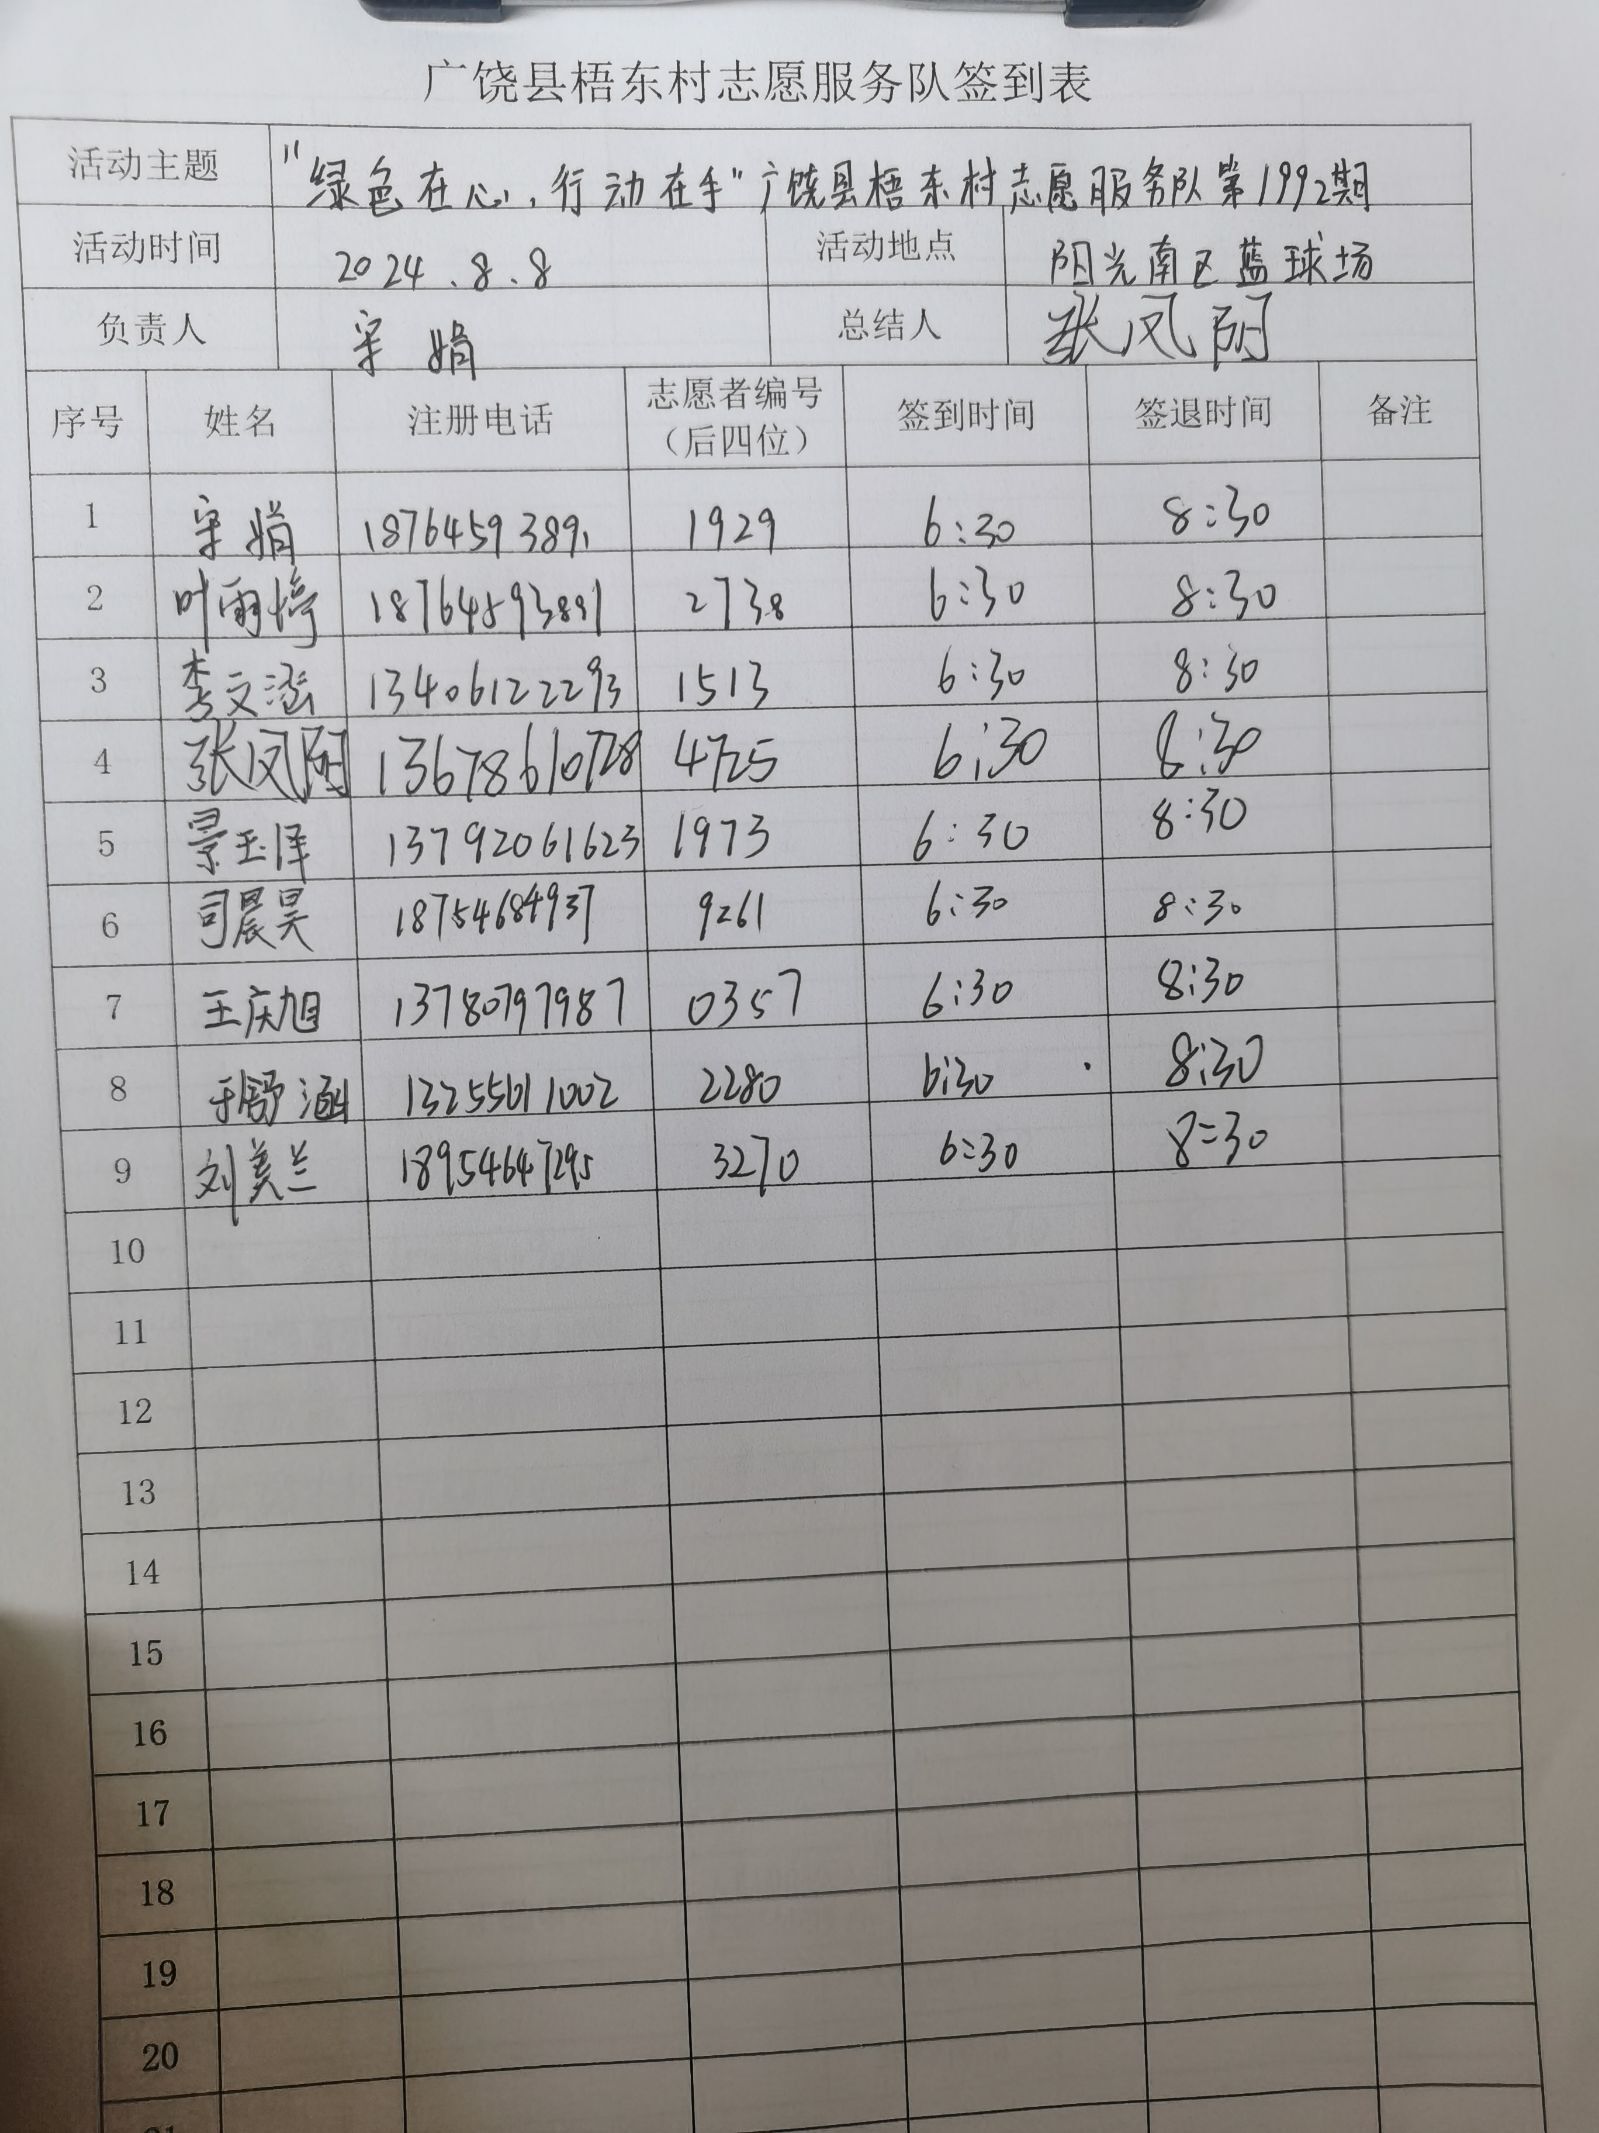 广饶县梧东村志愿服务队签到表
活动主题 "绿色在心,行动在手"广饶县梧东村志愿服务队第1992期
活动时间 2024.8.8 活动地点 阳光南区蓝球场
负责人 宋娟 总结人 张凤阴
序号 姓名 注册电话 志愿者编号（后四位） 签到时间 签退时间 备注
1 宋娟 18764593891 1929 6:30 8:30
2 叶雨婷 18764593891 2738 6:30 8:30
3 李文涵 13406122293 1513 6:30 8:30
4 张凤阴 13678610728 4725 6:30 8:30
5 景玉泽 13792061623 1973 6:30 8:30
6 司晨昊 18754684937 9261 6:30 8:30
7 王庆旭 13780797987 0357 6:30 8:30
8 于舒涵 13255611002 2280 6:30 8:30
9 刘美兰 18954647295 3270 6:30 8:30
10
11
12
13
14
15
16
17
18
19
20